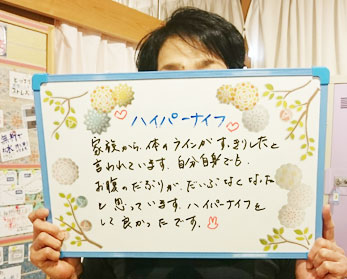 ハイパーナイフ
家族から、体のラインがすっきりしたと
言われています。自分自身でも、
お腹のたぷりが、だいぶなくなった
と思っています。ハイパーナイフを
して良かったです。